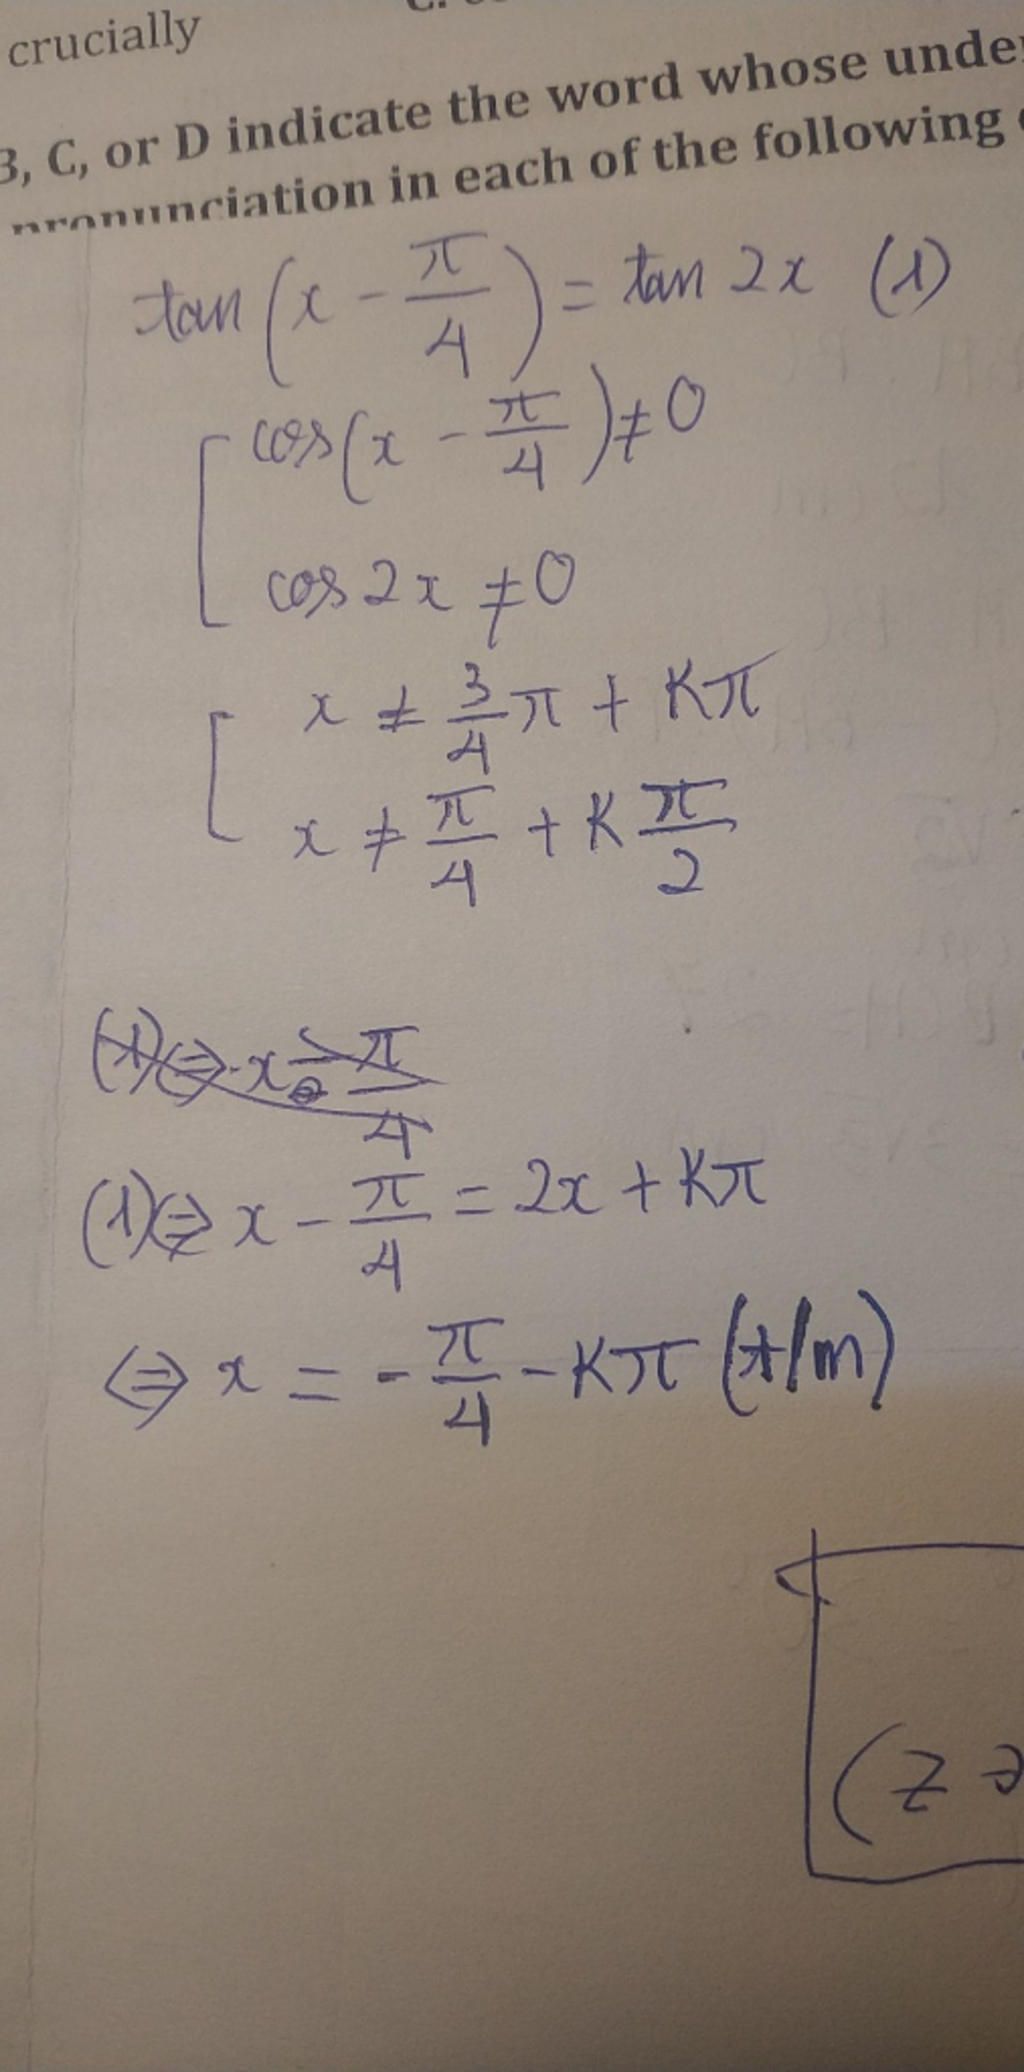 crucially
B, C, or D indicate the word whose
pronunciation in each of the following
tan (x - π/4) = tan 2x (1)
cos(x - π/4) ≠ 0
cos 2x ≠ 0
x ≠ 3/4 π + Kπ
x ≠ π/4 + K π/2
(1) ⇔ x - π/4 = 2x + Kπ
⇔ x = - π/4 - Kπ (t/m)
(Z